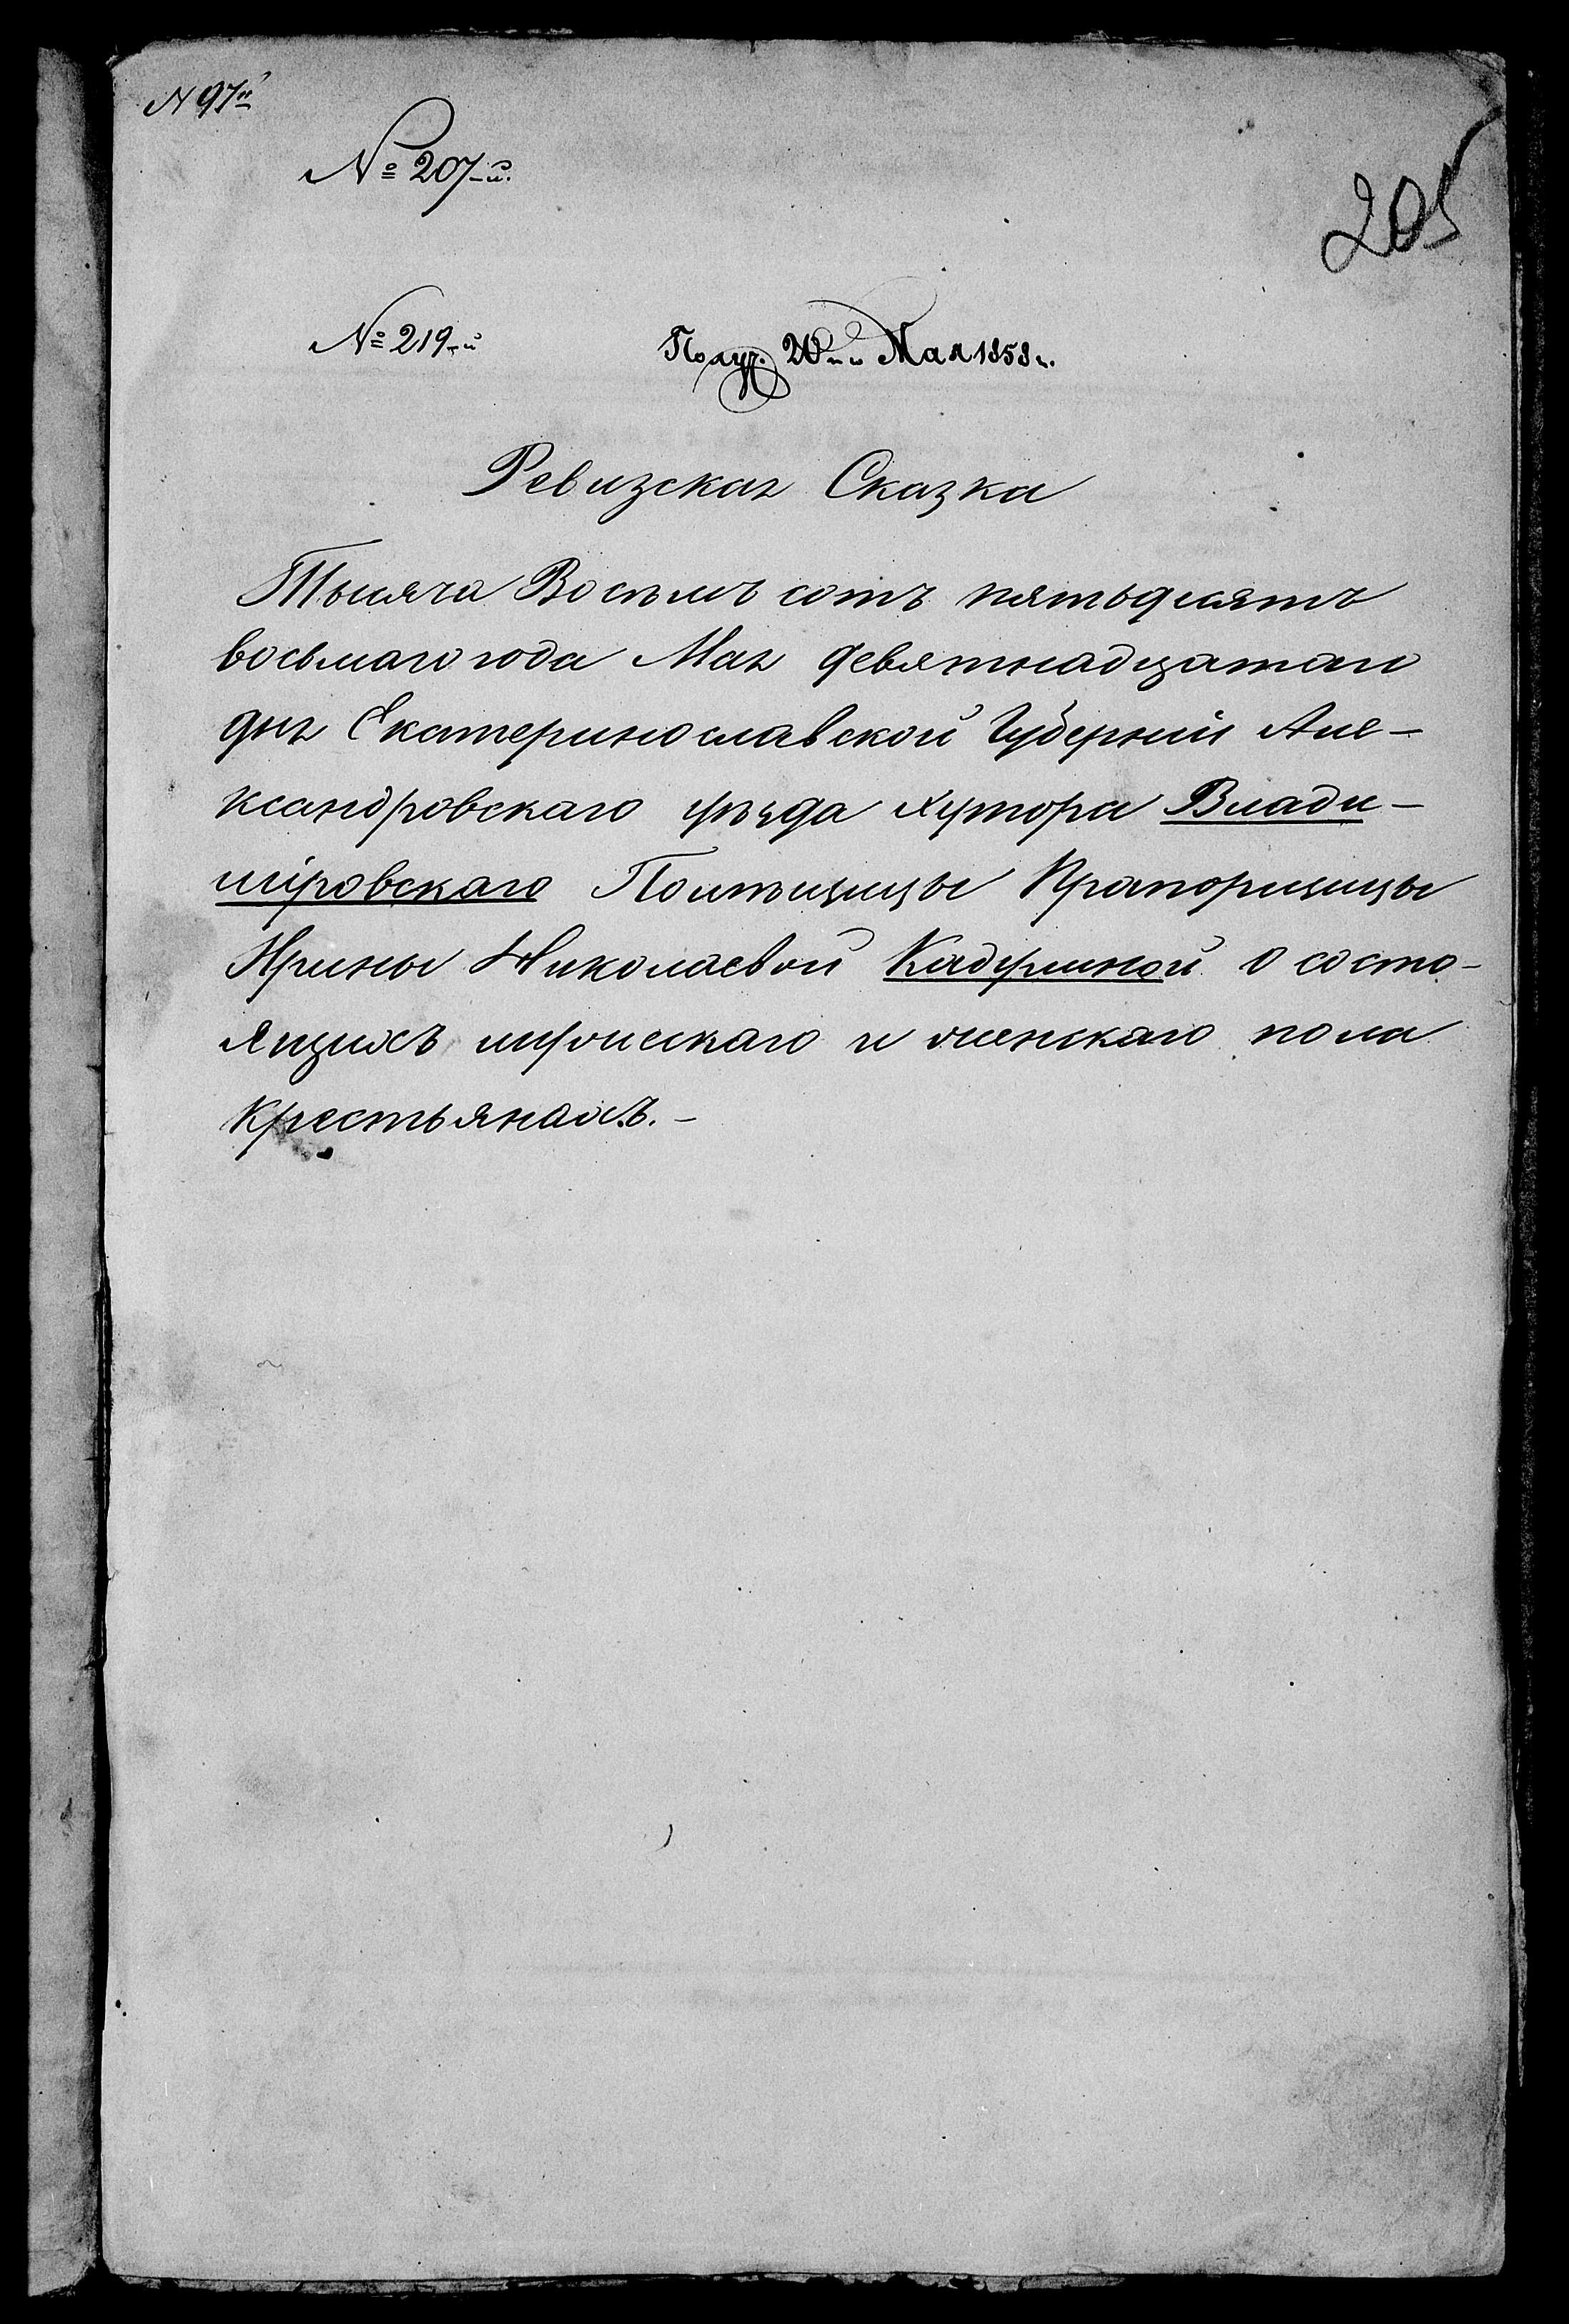 № 97й
№ 207-й.
205
№ 219-й
Получ. 20го Мая 1858 г.
Ревизская Сказка
Тысяча Восемь сотъ пятьдесятъ
восьмаго года Мая девятнадцатаго
дня Екатеринославской Губерніи Але-
ксандровскаго уѣзда хутора Влади-
міровскаго Помѣщицы Прапорщицы
Ирины Николаевой о состо-
ящихъ мужескаго и женскаго пола
крестьянахъ.-